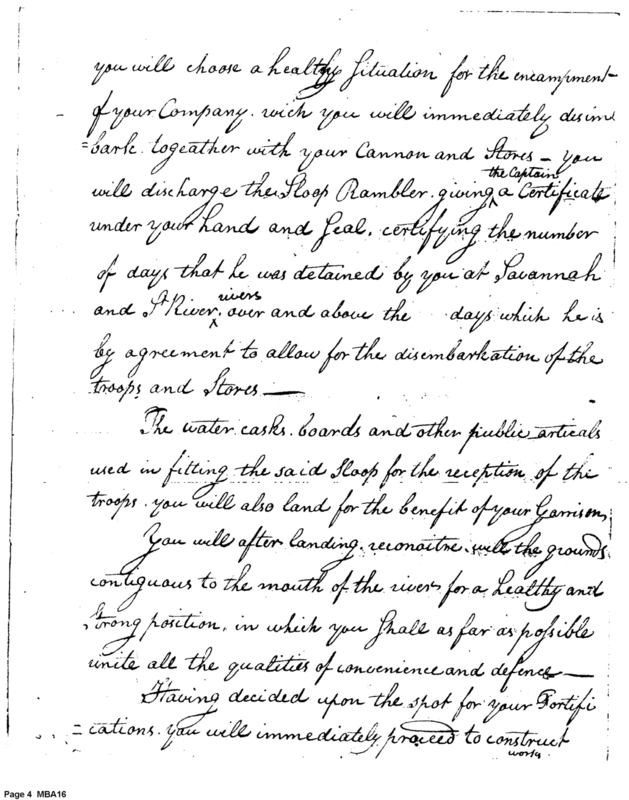 you will choose a healthy Situation for the encampment
of your Company. wich you will immediately disim
=bark togeather with your Cannon and Stores – you
the Captain
will discharge the Sloop Rambler. giving ^ a Certificate
under your hand and Seal, certifying the number
of days that he was detained by you at Savannah
rivers
and St River, ^ over and above the days which he is
by agreement to allow for the disembarkation of the
troops and Stores —
The water casks. boards and other public articals
used in fitting the said Sloop for the reception of the
troops. you will also land for the benefit of your Garrison,
You will after landing. reconoitre well the grounds
contiguous to the mouth of the river for a healthy and
strong position, in which you Shall as far as possible
unite all the qualities of convenience and defence —
Having decided upon the spot for your Fortifi
=cations. you will immediately proceed to construct
works
Page 4 MBA16